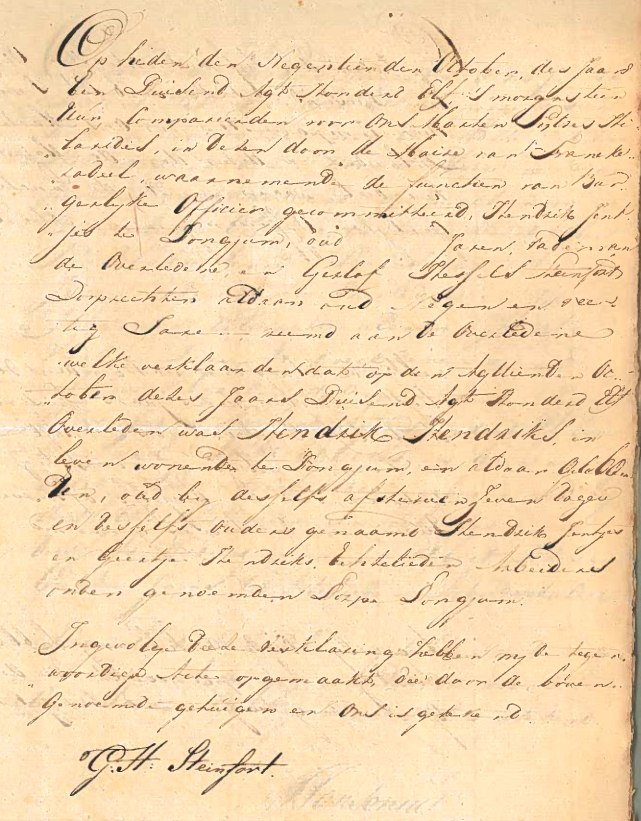 Op heden den Negentienden October, des Jaars
Een Duisend Agt Honderd Elf 's morgens tien
Uur, Compareerden voor Ons Marten
in desen door de Maire van Franeke-
radeel, waarnemende de functien van Bur-
gerlyke Officier gecommitteerd, Hendrik Jent-
jes te Tongjum, oud Jaren, Vader van
de Overledene, en Geelof Hessels Steinfort
Dorprechter aldaar oud Negen en vee-
tig Jare vreemd aan de Overledene
welke verklaarden dat op den Agttienden Oc-
tober deses Jaars Duisend Agt Honderd Elf
Overleden was Hendrik Hendriks, in
leven wonende te Tongjum, en aldaar
oud by desselfs afsterven Zeven dagen
en desselfs ouders genaamd Hendrik Jentjes
en Geertje Hendriks Echtelieden Arbeiders
onder genoemden Dorpe Tongjum.
Ingevolge diede Verklaring hebben wy de tegen-
woordige Acte opgemaakt, die door de boven-
Genoemde getuigen en Ons is getekend.
G. H. Steinfort.